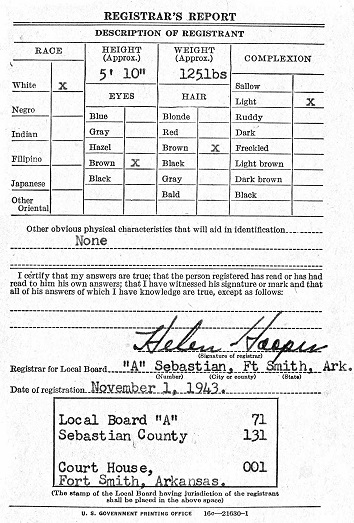 REGISTRAR'S REPORT
DESCRIPTION OF REGISTRANT
RACE
HEIGHT (Approx.)
WEIGHT (Approx.)
COMPLEXION
5' 10"
125lbs
White X
Negro
Indian
Filipino
Japanese
Other Oriental
EYES
Blue
Gray
Hazel
Brown X
Black
HAIR
Blonde
Red
Brown X
Black
Gray
Bald
Sallow
Light X
Ruddy
Dark
Freckled
Light brown
Dark brown
Black
Other obvious physical characteristics that will aid in identification
None
I certify that my answers are true; that the person registered has read or has had
read to him his own answers; that I have witnessed his signature or mark and that
all of his answers of which I have knowledge are true, except as follows:
Helen Hooper
(Signature of registrar)
Registrar for Local Board "A" Sebastian, Ft Smith, Ark.
(Number) (City or county) (State)
Date of registration November 1, 1943.
Local Board "A" 71
Sebastian County 131
Court House, 001
Fort Smith, Arkansas.
(The stamp of the Local Board having jurisdiction of the registrant
shall be placed in the above space)
U. S. GOVERNMENT PRINTING OFFICE 16c—21630-1